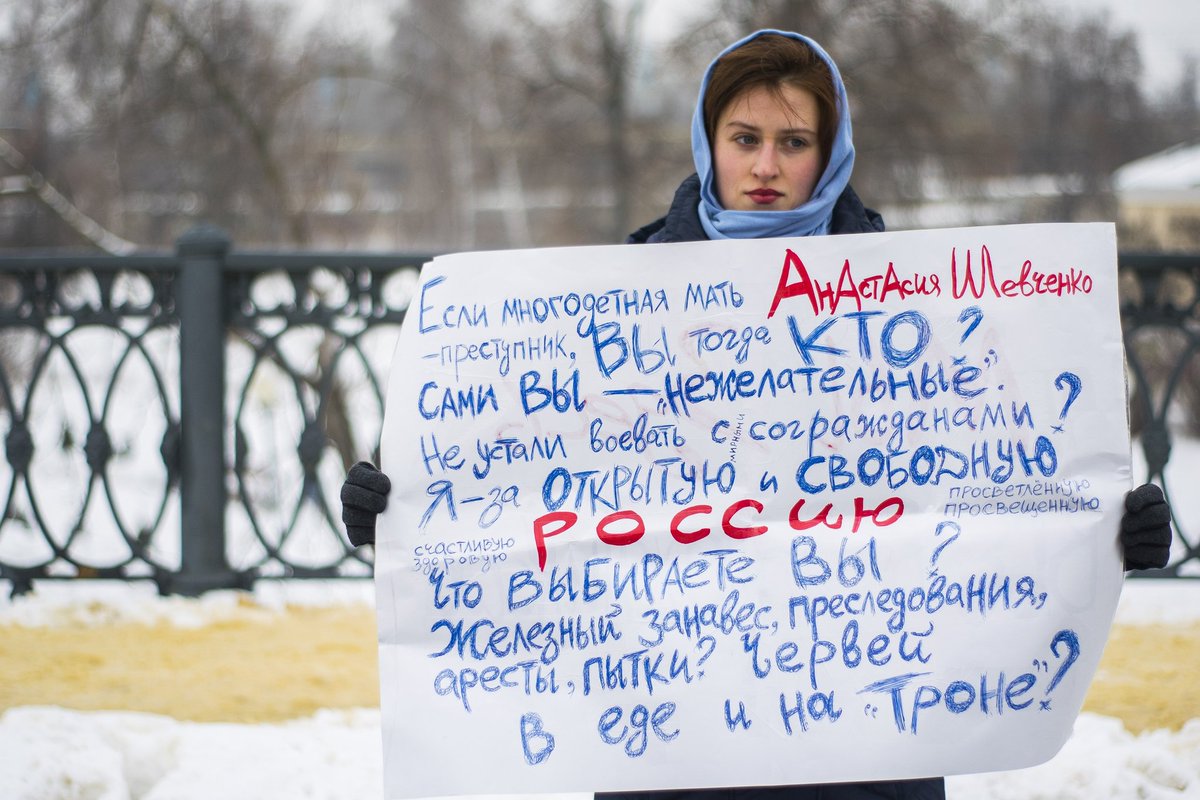 Если многодетная мать Анастасия Шевченко
– преступник, Вы тогда КТО?
Сами Вы – „нежелательные".
Не устали воевать с мирными согражданами?
Я – за ОТКРЫТУЮ и СВОБОДНУЮ
просветлённую
просвещенную
РОССИЮ
счастливую
здоровую
Что ВЫБИРАЕТЕ Вы?
Железный занавес, преследования,
аресты, пытки? Червей
в еде и на „троне"?